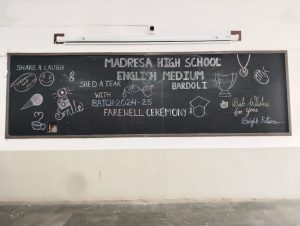 MADRESA HIGH SCHOOL
SHARE A LAUGH
ENGLISH MEDIUM
&
SHED A TEAR
BARDOLI
WITH
BATCH-2024-25
Smile
FAREWELL CEREMONY
Best Wishes
for you
Bright Future